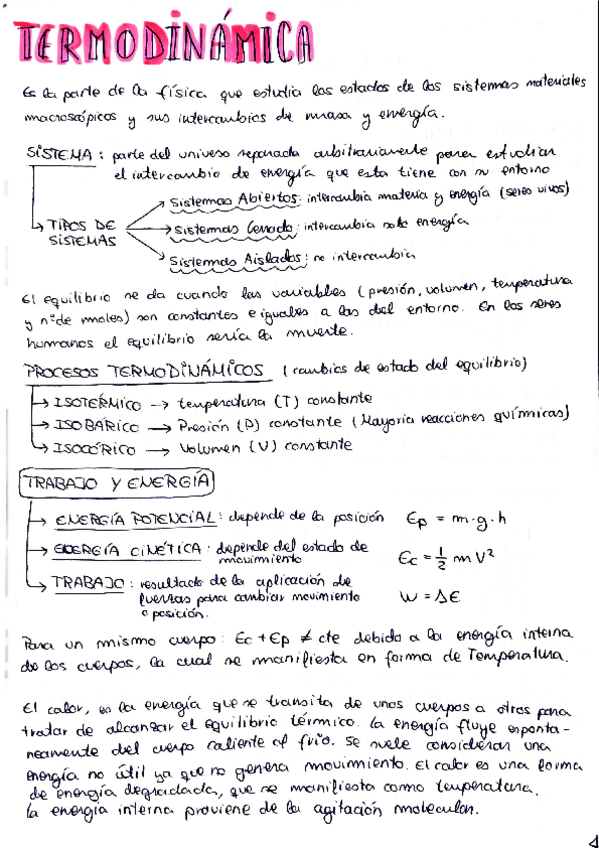 TERMODINÁMICA
Es la parte de la física que estudia los estados de los sistemas materiales
macroscópicos y sus intercambios de masa y energía.
SISTEMA: parte del universo separada arbitrariamente para estudiar
el intercambio de energía que esta tiene con su entorno
Sistemas Abiertos: intercambia materia y energía (seres vivos)
TIPOS DE → Sistemas Cerrado: intercambia solo energía
SISTEMAS
Sistemas Aislados: no intercambia
El equilibrio se da cuando las variables (presión, volumen, temperatura
y nº de moles) son constantes e iguales a las del entorno. En los seres
humanos el equilibrio sería la muerte.
PROCESOS TERMODINÁMICOS (cambios de estado del equilibrio)
→ ISOTÉRMICO → temperatura (T) constante
→ ISOBÁRICO → Presión (P) constante (Mayoría reacciones químicas)
→ ISOCÓRICO → Volumen (V) constante
TRABAJO Y ENERGÍA
→ ENERGÍA POTENCIAL: depende de la posición Ep = m·g·h
→ ENERGÍA CINÉTICA: depende del estado de
movimiento Ec = 1/2 m V²
→ TRABAJO: resultado de la aplicación de
fuerzas para cambiar movimiento W = ΔE
o posición.
Para un mismo cuerpo: Ec + Ep ≠ cte debido a la energía interna
de los cuerpos, la cual se manifiesta en forma de Temperatura.
El calor, es la energía que se transita de unos cuerpos a otros para
tratar de alcanzar el equilibrio térmico. La energía fluye esponta-
neamente del cuerpo caliente al frío. Se suele considerar una
energía no útil ya que no genera movimiento. El calor es una forma
de energía degradada, que se manifiesta como temperatura.
La energía interna proviene de la agitación molecular.
1